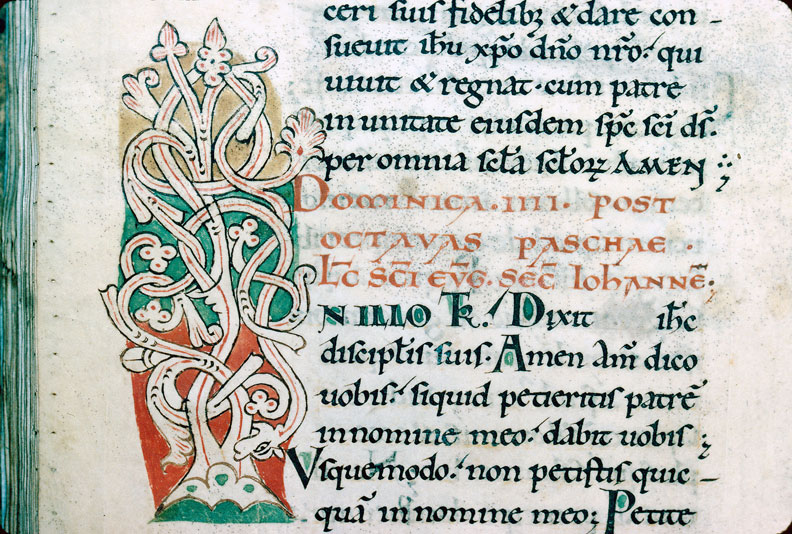 ceri suis fidelibꝫ & dare con-
sueuit ih̅u xp̅o dn̅o nr̅o. qui
uiuit & regnat. cum patre
in unitate eiusdem sp̅c sc̅i ds̅.
per omnia scl̅a scl̅oꝝ AMEN
DOMINICA. IIII. POST
OCTAVAS PASCHAE.
LC̅ SC̅I EVG̅. SEC̅ IOHANNE̅;
N ILLO T̅R. Dixit ih̅c
discipl̅is suis. Amen am̅ dico
uobis. siquid petieritis patre̅
in nomine meo. dabit uobis;
Vsquemodo. non petistis quic-
qua̅ in nomine meo; Petite